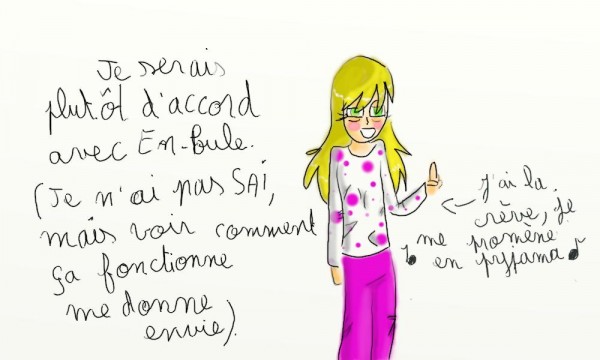 Je serais
plutôt d'accord
avec En-bulle.
(Je n'ai pas SAI,
mais voir comment
ça fonctionne
me donne
envie).
j'ai la
crève, je
me promène
en pyjama